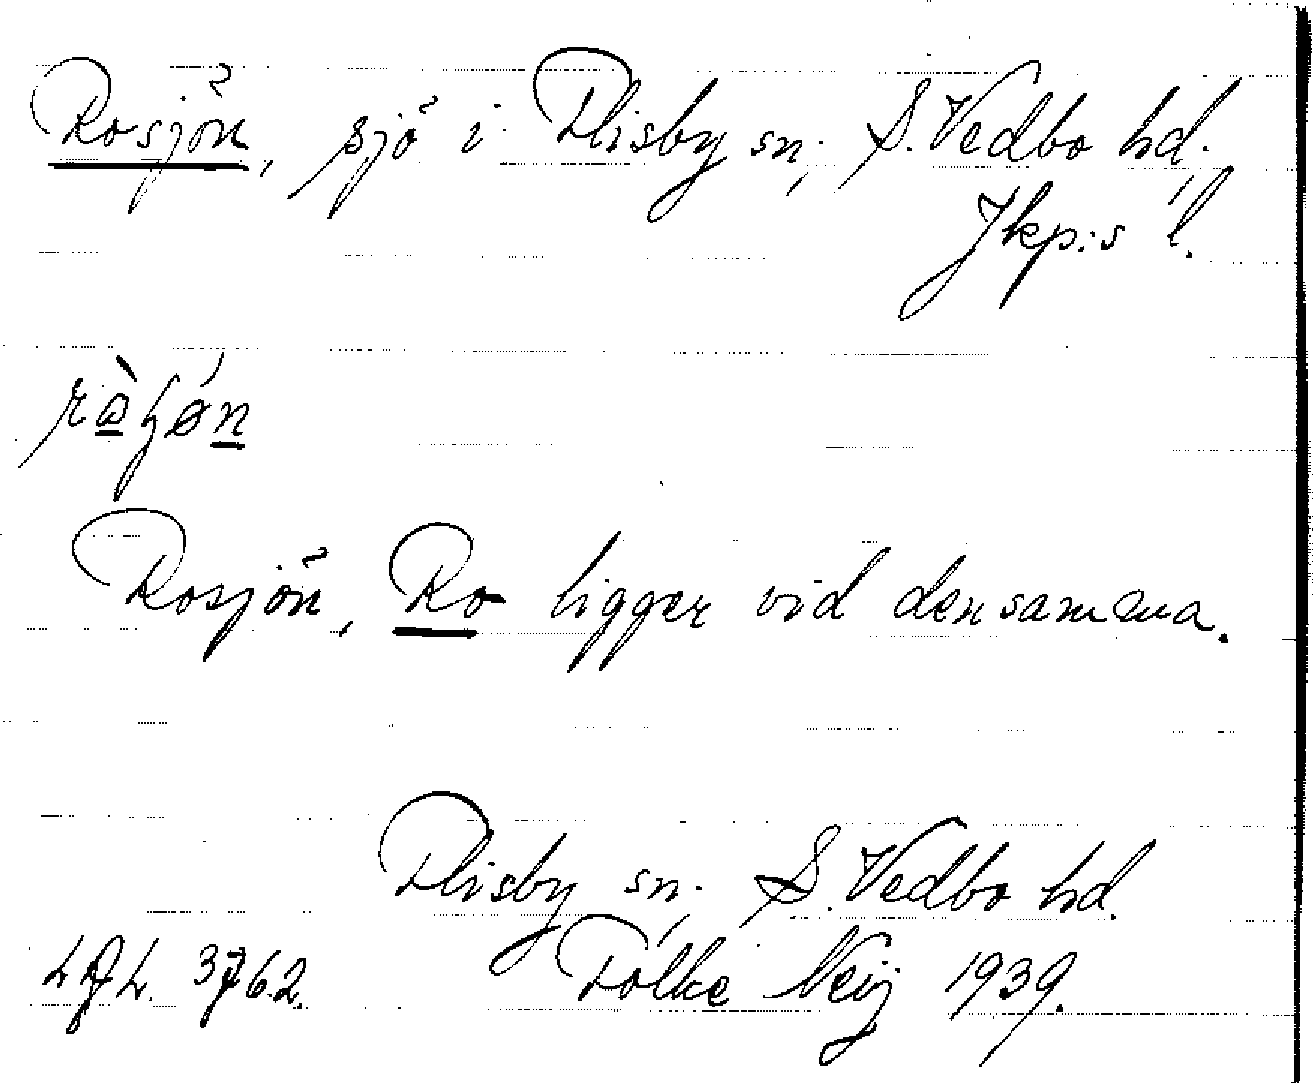 Rosjön, sjö i Flisby sn, S. Vedbo hd.
Jkp:s l.
Rosjön, Ro ligger vid densamma.
Flisby sn. S. Vedbo hd.
Folke Neij 1939.